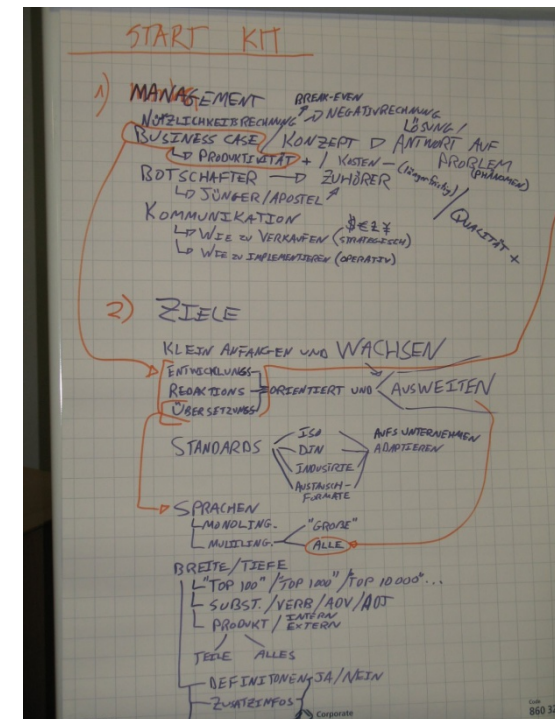 START KIT
1) MANAGEMENT
BREAK-EVEN
NÜTZLICHKEITSRECHNUNG → NEGATIVRECHNUNG
BUSINESS CASE / KONZEPT ▷ LÖSUNG / ANTWORT AUF PROBLEM (PHÄNOMEN)
↳ PRODUKTIVITÄT + / KOSTEN – (längerfristig) / QUALITÄT +
BOTSCHAFTER → ZUHÖRER
↳ JÜNGER/APOSTEL
KOMMUNIKATION
↳ WIE ZU VERKAUFEN (STRATEGISCH) $€£¥
↳ WIE ZU IMPLEMENTIEREN (OPERATIV)
2) ZIELE
KLEIN ANFANGEN UND WACHSEN
ENTWICKLUNGS-
REDAKTIONS- ORIENTIERT UND AUSWEITEN
ÜBERSETZUNGS-
STANDARDS
ISO
DIN
INDUSTRIE
AUSTAUSCH-
FORMATE
AUFS UNTERNEHMEN
ADAPTIEREN
SPRACHEN
MONOLING.
MULTILING.
"GROßE"
ALLE
BREITE/TIEFE
"TOP 100"/"TOP 1000"/"TOP 10000"...
SUBST./VERB/ADV/ADJ
PRODUKT/INTERN
EXTERN
TEILE ALLES
DEFINITIONEN JA/NEIN
ZUSATZINFOS
Corporate
Code
860 3